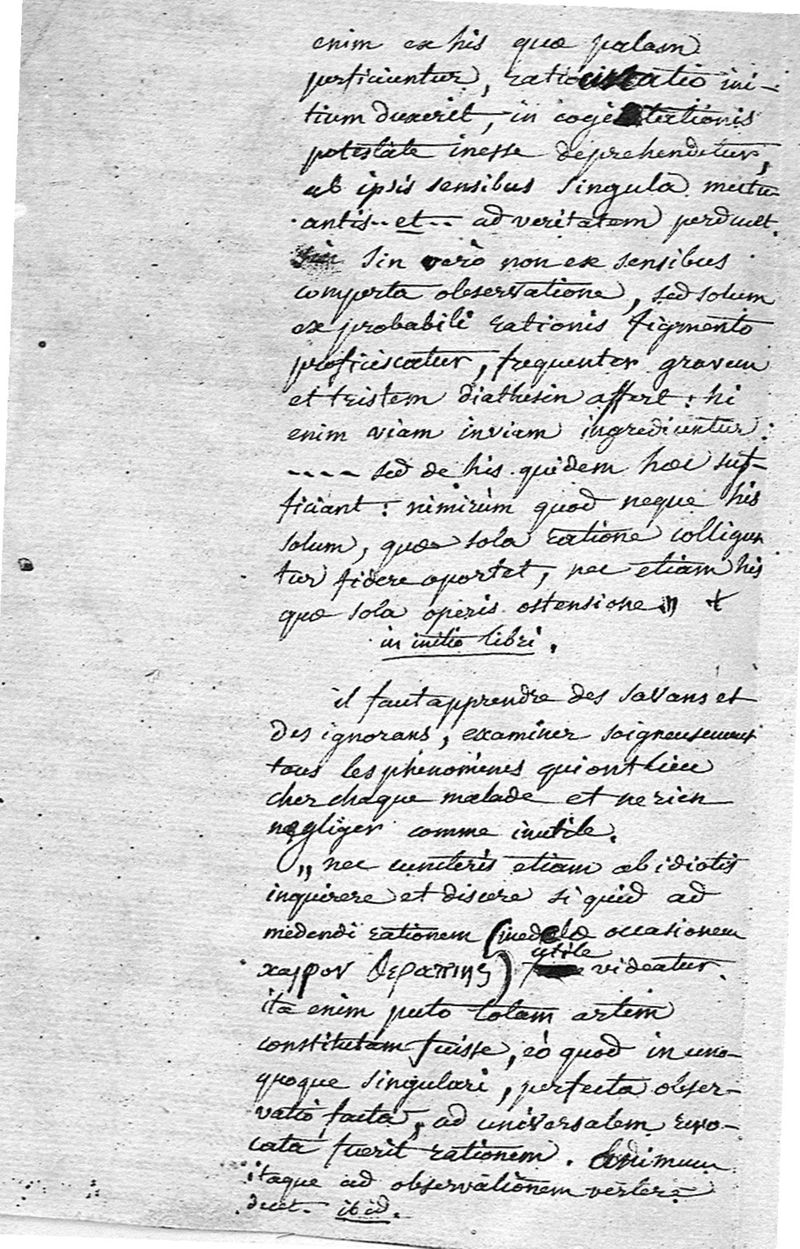 enim ex his quæ palam
perficiuntur, ratiocinatio ini-
tium duxerit, in cogitationis
potestate inesse deprehenditur,
ab ipsis sensibus singula mutu-
antis -- et -- ad veritatem perducet.
Sin vero non ex sensibus
comperta observatione, sed solum
ex probabili rationis figmento
proficiscatur, frequenter gravem
et tristem diathesin affert: hi
enim viam inviam ingrediuntur:
---- sed de his quidem hæc suf-
ficiant: nimirùm quod neque his
solum, quæ sola ratione colligun
tur fidere oportet, nec etiam his
quæ sola operis ostensione"
in initio libri.
il faut apprendre des savans et
des ignorans, examiner soigneusement
tous les phénomènes qui ont lieu
cher chaque malade et ne rien
négliger comme inutile.
"nec cuncteris etiam ab idiotis
inquirere et discere si quid ad
medendi rationem (medelæ occasionem
utile
θεραπιης) videatur.
ita enim puto totam artem
constitutam fuisse, eò quod in uno-
quoque singulari, perfecta obser-
vatio facta, ad universalem revo-
cata fuerit rationem. Animum
itaque ad observationem vertere
decet. ibid.